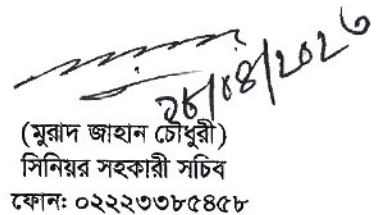 ২৮/০৪/২০২৬
(মুরাদ জাহান চৌধুরী)
সিনিয়র সহকারী সচিব
ফোনঃ ০২২২৩৩৮৫৪৫৮